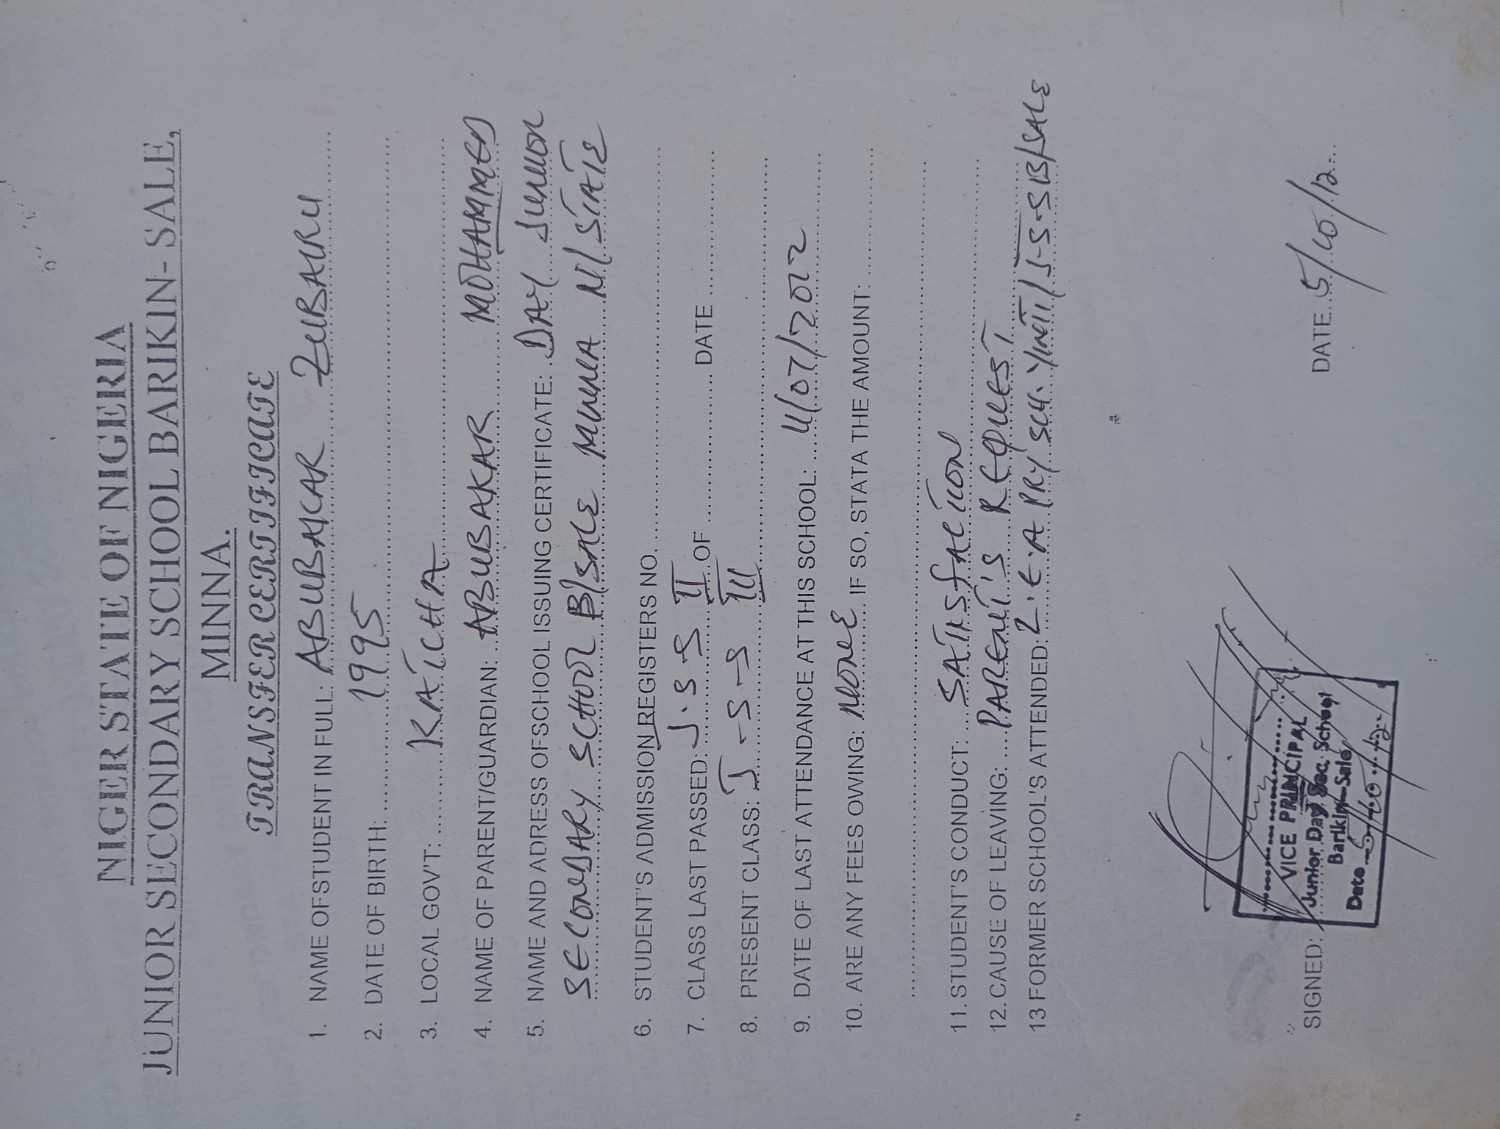 NIGER STATE OF NIGERIA
JUNIOR SECONDARY SCHOOL BARIKIN- SALE,
MINNA.
TRANSFER CERTIFICATE
1. NAME OFSTUDENT IN FULL: ABUBAKAR ZUBAIRU
2. DATE OF BIRTH: 1995
3. LOCAL GOV'T: KATCHA
4. NAME OF PARENT/GUARDIAN: ABUBAKAR MOHAMMED
5. NAME AND ADRESS OFSCHOOL ISSUING CERTIFICATE: DAY JUNIOR
SECONDARY SCHOOL B/SALE MINNA N/STATE
6. STUDENT'S ADMISSION REGISTERS NO.
7. CLASS LAST PASSED: J.S.S II OF DATE
8. PRESENT CLASS: J-S-S III
9. DATE OF LAST ATTENDANCE AT THIS SCHOOL: 11/07/2012
10. ARE ANY FEES OWING: NONE IF SO, STATA THE AMOUNT:
11. STUDENT'S CONDUCT: SATISFACTION
12. CAUSE OF LEAVING: PARENT'S REQUEST
13 FORMER SCHOOL'S ATTENDED: L.E.A PRY SCH. / J-S-S B/SALE
SIGNED: DATE 5/10/12
VICE PRINCIPAL
Junior Day Sec. School
Barikin-Sale
Date 5/10/12